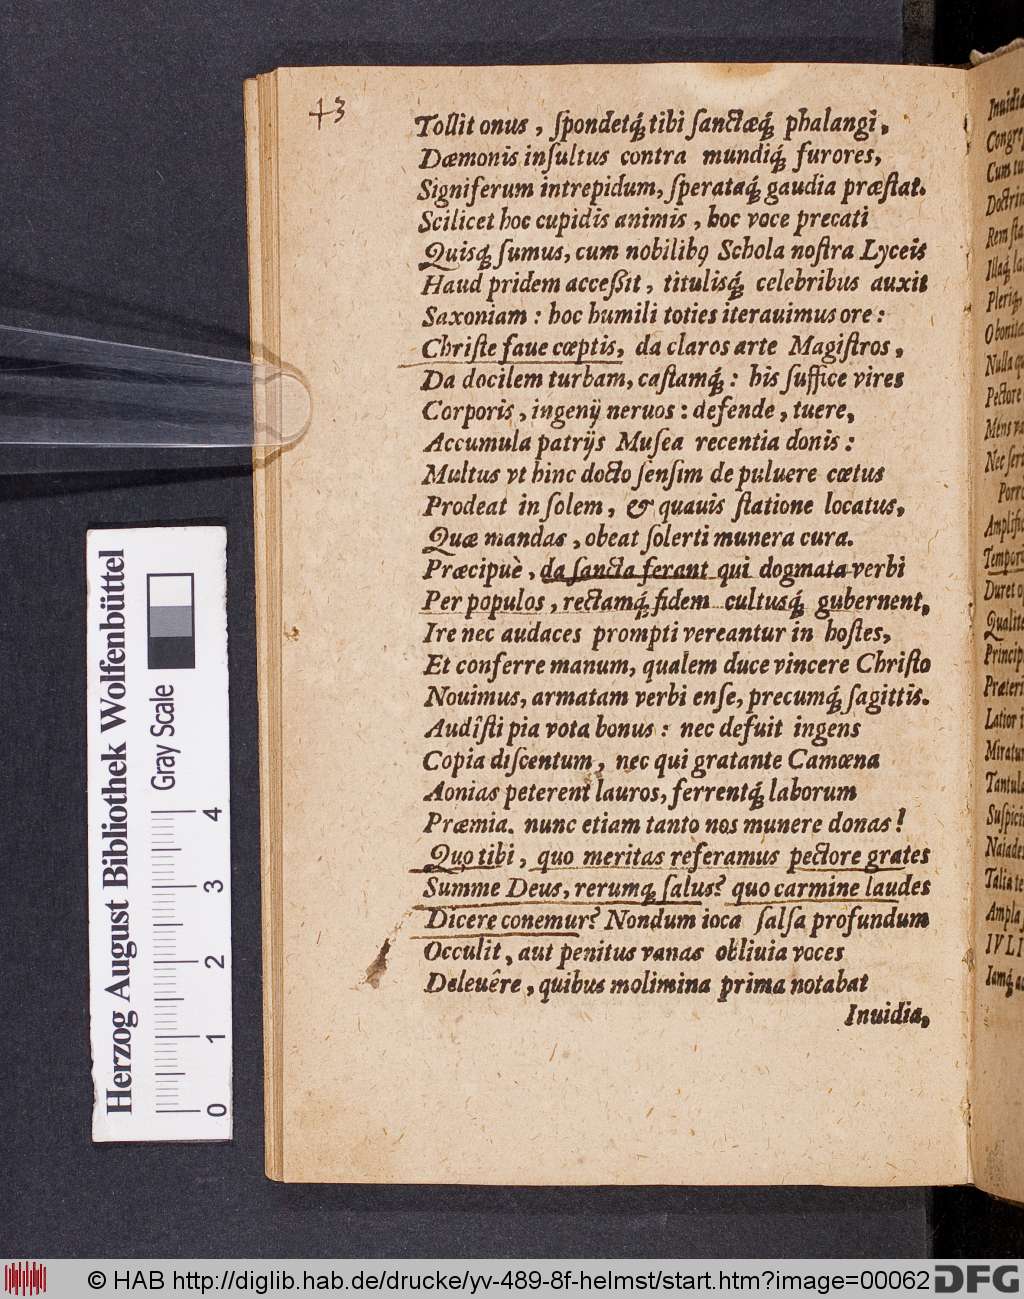 43
Tollit onus, ſpondetq́; tibi ſanctæq́; phalangi,
Dæmonis inſultus contra mundiq́; furores,
Signiferum intrepidum, ſperataq́; gaudia præſtat.
Scilicet hoc cupidis animis, hoc voce precati
Quisq; ſumus, cum nobilibꝰ Schola noſtra Lyceis
Haud pridem acceßit, titulisq́; celebribus auxit
Saxoniam: hoc humili toties iterauimus ore:
Chriſte faue cœptis, da claros arte Magiſtros,
Da docilem turbam, caſtamq́;: his ſuffice vires
Corporis, ingenij neruos: defende, tuere,
Accumula patrijs Muſea recentia donis:
Multus vt hinc docto ſenſim de puluere cœtus
Prodeat in ſolem, & quauis ſtatione locatus,
Quæ mandas, obeat ſolerti munera cura.
Præcipuè, da ſancta ferant qui dogmata verbi
Per populos, rectamq́; fidem cultusq́; gubernent,
Ire nec audaces prompti vereantur in hoſtes,
Et conferre manum, qualem duce vincere Chriſto
Nouimus, armatam verbi enſe, precumq́; ſagittis.
Audîſti pia vota bonus: nec defuit ingens
Copia diſcentum, nec qui gratante Camœna
Aonias peterent lauros, ferrentq́; laborum
Præmia. nunc etiam tanto nos munere donas!
Quo tibi, quo meritas referamus pectore grates
Summe Deus, rerumq; ſalus? quo carmine laudes
Dicere conemur? Nondum ioca ſalſa profundum
Occulit, aut penitus vanas obliuia voces
Deleuêre, quibus molimina prima notabat
Inuidia,
Inuidia
Congre
Cum tu
Doctrin
Rem ſta
Illaq́; la
Pleriq;
O bonita
Nulla qu
Pectore
Mens va
Nec ſeri
Porrò
Amplifi
Tempor
Duret o
Qualite
Princip
Præteri
Latior i
Miratur
Tantula
Suſpici
Naiades
Talia te
Ampla
IVLI
Iamq́; a
Herzog August Bibliothek Wolfenbüttel
Gray Scale
0 1 2 3 4
© HAB http://diglib.hab.de/drucke/yv-489-8f-helmst/start.htm?image=00062
DFG